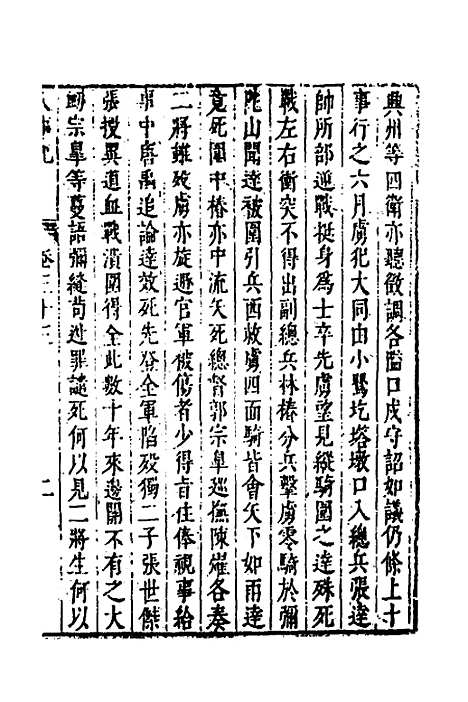 興州等四衛亦聽徵調各隘口戍守詔如議仍條上十
事行之六月虜犯大同由小鶯圪塔墩口入總兵張達
帥所部逆戰挺身為士卒先虜望見縱騎圍之達殊死
戰左右衝突不得出副總兵林椿分兵擊虜零騎於彌
陀山聞達被圍引兵西救虜四面騎皆會矢下如雨達
竟死圍中椿亦中流矢死總督郭宗皐巡撫陳燿各奏
二將雖歿虜亦旋遁官軍被傷者少得旨住俸視事給
事中唐禹追論達效死先登全軍陷歿獨二子張世傑
張授異道血戰潰圍得全此數十年來邊關不有之大
衂宗皐等蔓語彌縫苟逃罪譴死何以見二將生何以
卷三十三
二